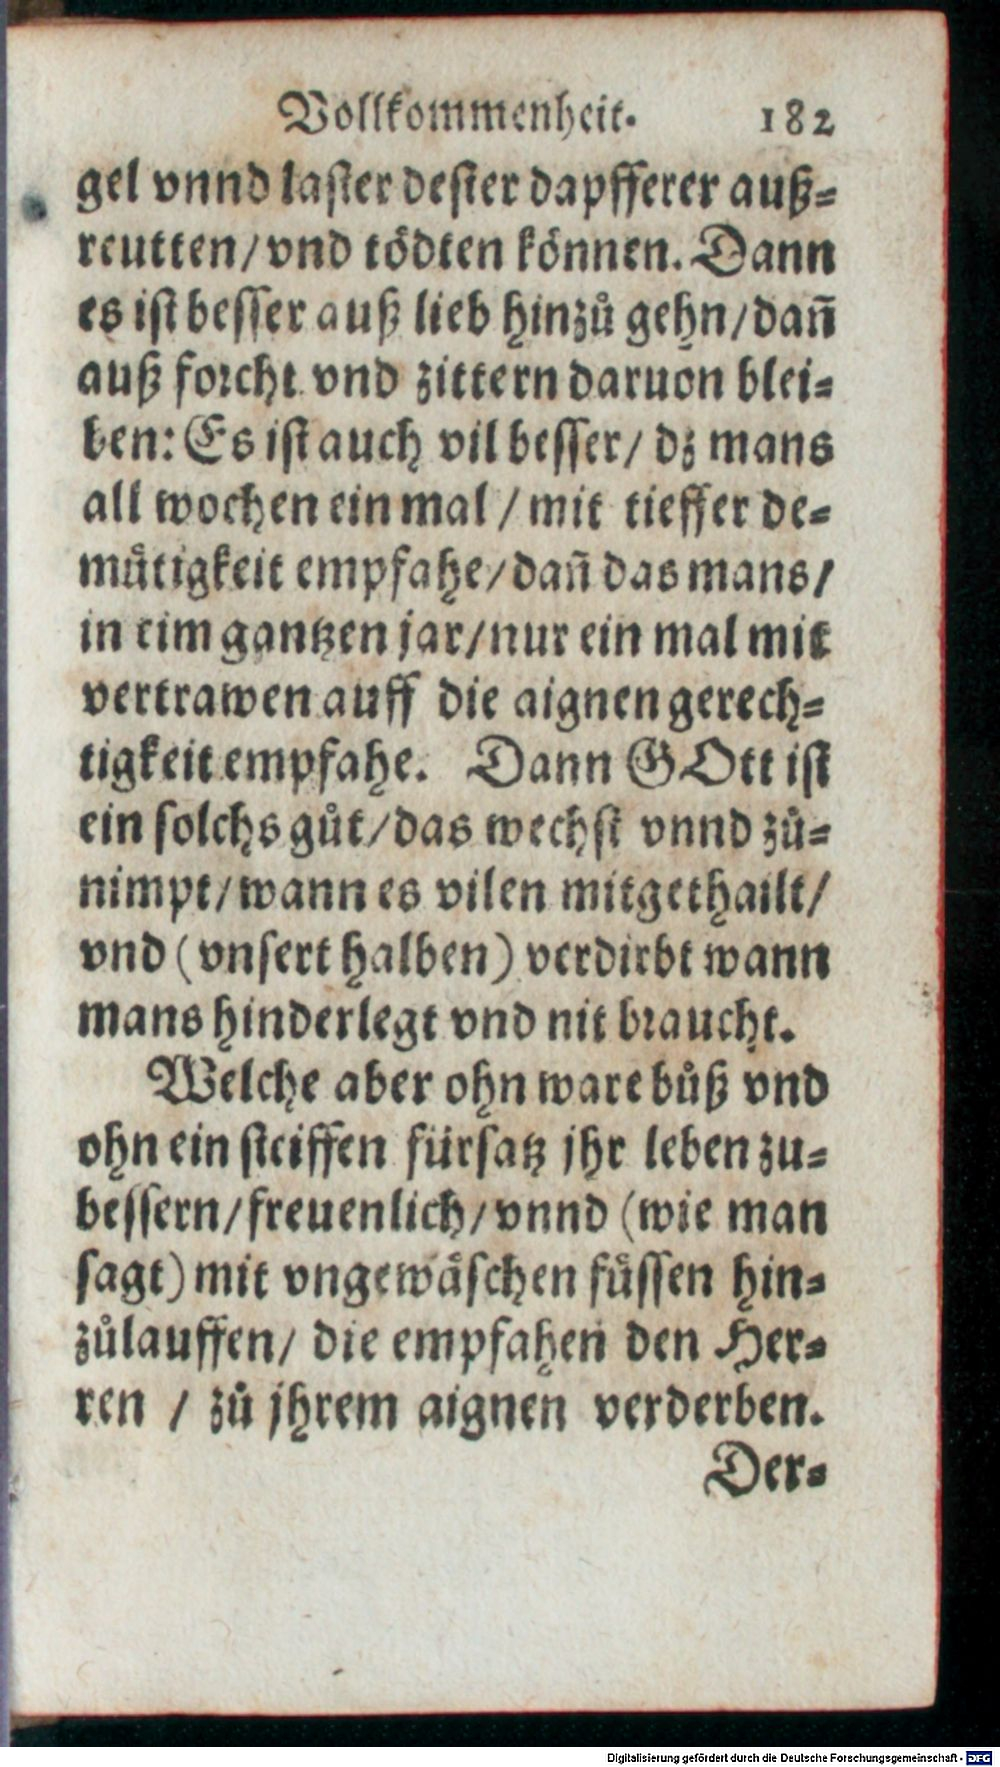 Vollkommenheit. 182
gel vnnd laster dester dapfferer auß-
reutten/vnd tödten können. Dann
es ist besser auß lieb hinzů gehn/dañ
auß forcht vnd zittern daruon blei-
ben: Es ist auch vil besser/ dz mans
all wochen ein mal / mit tieffer de-
mütigkeit empfahe/dañ das mans/
in eim gantzen jar/nur ein mal mit
vertrawen auff die aignen gerech-
tigkeit empfahe. Dann GOtt ist
ein solchs gůt/das wechst vnnd zů-
nimpt/wann es vilen mitgethailt/
vnd (vnsert halben) verdirbt wann
mans hinderlegt vnd nit braucht.
Welche aber ohn ware bůß vnd
ohn ein steiffen fürsatz jhr leben zu-
bessern/freuenlich/vnnd (wie man
sagt) mit vngewäschen füssen hin-
zůlauffen/ die empfahen den Her-
ren / zů jhrem aignen verderben.
Der-
Digitalisierung gefördert durch die Deutsche Forschungsgemeinschaft - DFG